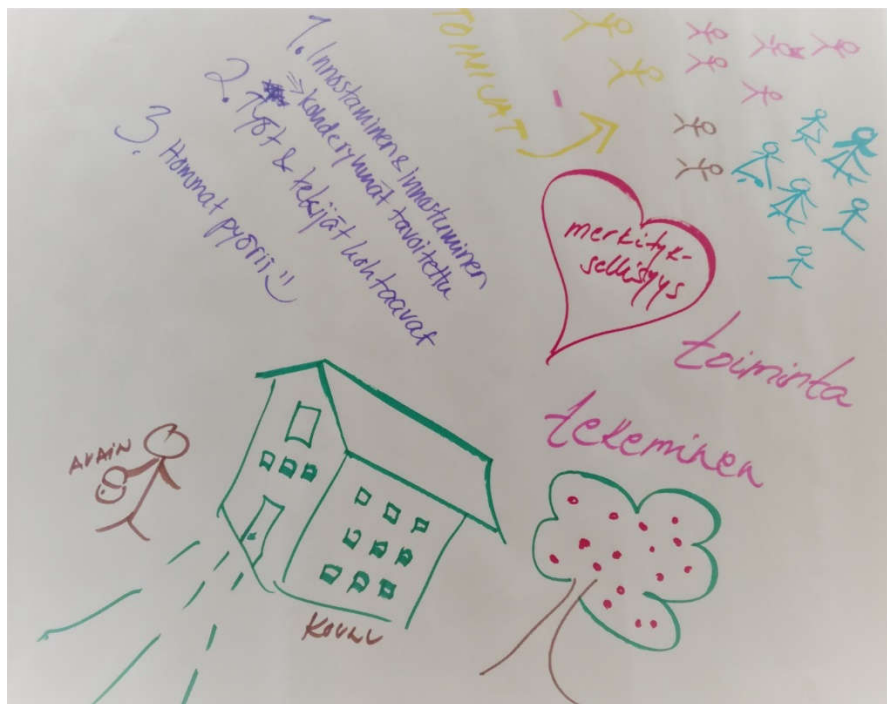 TOIMIJAT
1. Innostaminen & innostuminen
⇒ kohderyhmät tavoitettu
2. Työt & tekijät kohtaavat
3. Hommat pyörii :)
merkityk-
sellisyys
toiminta
tekeminen
AVAIN
KOULU